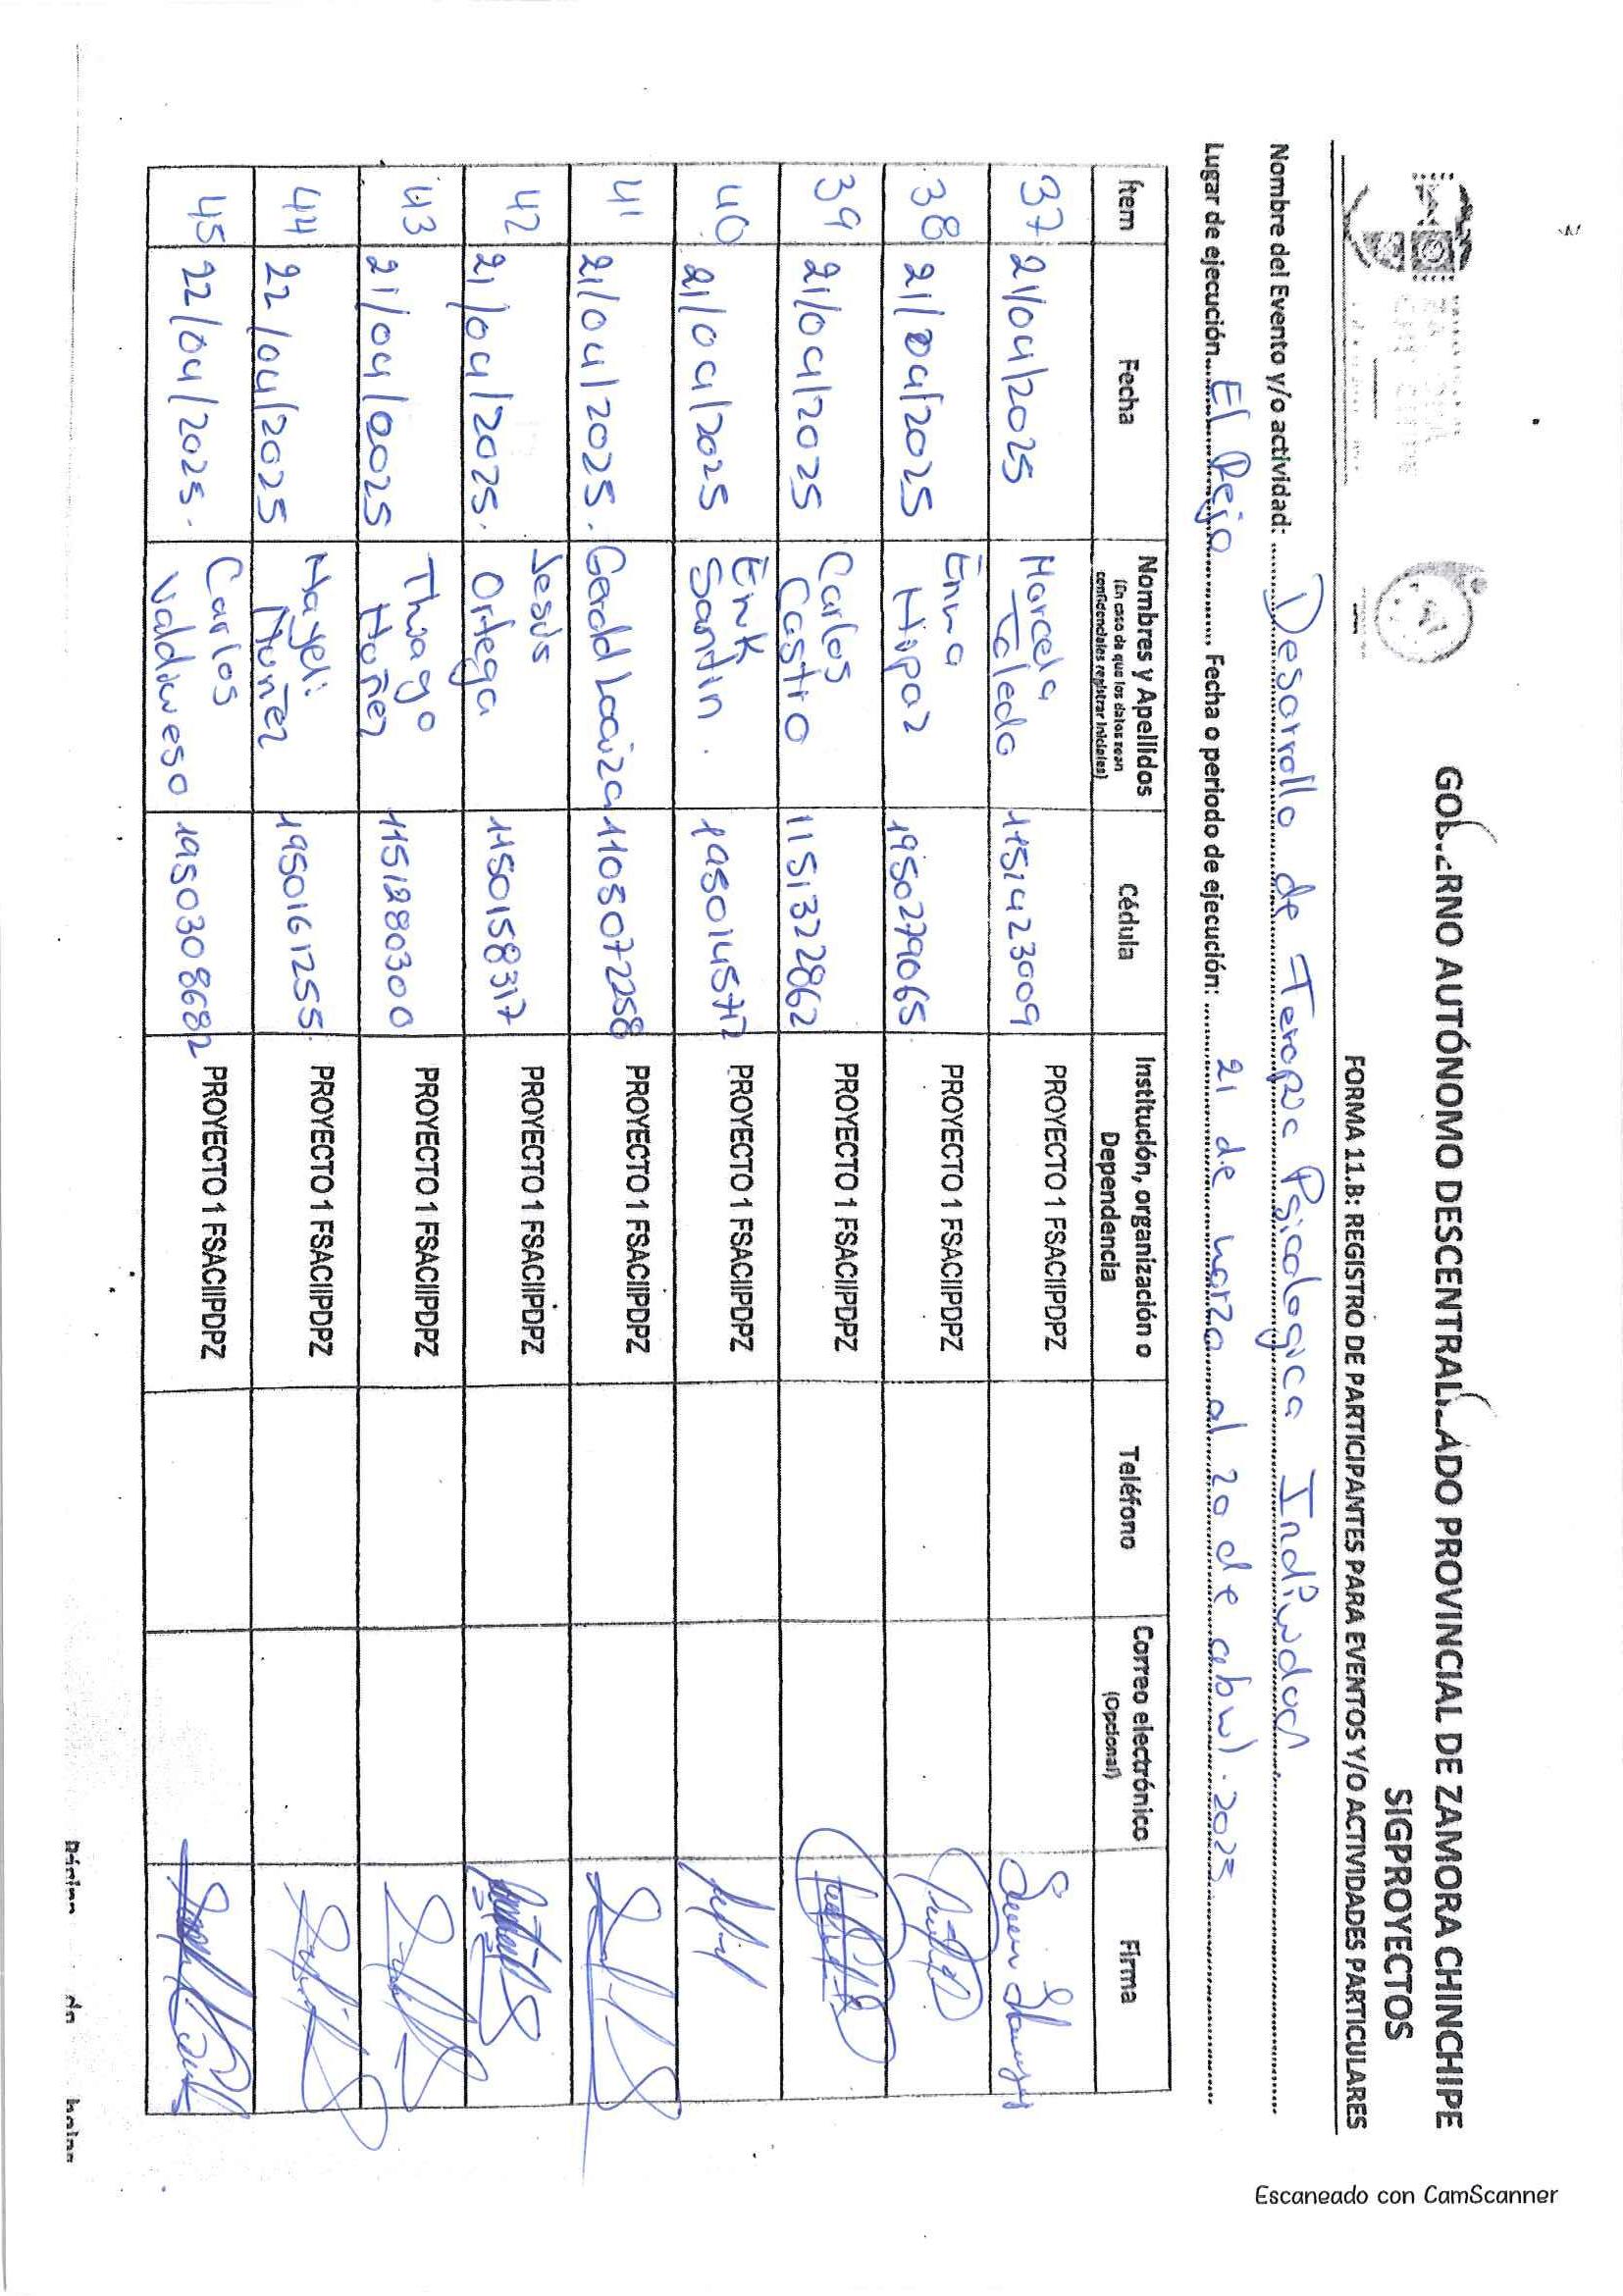 GOBIERNO AUTÓNOMO DESCENTRALIZADO PROVINCIAL DE ZAMORA CHINCHIPE
SIGPROYECTOS
FORMA 11.B: REGISTRO DE PARTICIPANTES PARA EVENTOS Y/O ACTIVIDADES PARTICULARES
Nombre del Evento y/o actividad: Desarrollo de Terapia Psicologica Individual.
Lugar de ejecución El Reja Fecha o periodo de ejecución: 21 de marzo al 20 de abril. 2025
Ítem Fecha Nombres y Apellidos (En caso de que los datos sean confidenciales registrar iniciales) Cédula Institución, organización o Dependencia Teléfono Correo electrónico (Opcional) Firma
37 21/04/2025 Marcela Toledo 1151423009 PROYECTO 1 FSACIIPDPZ
38 21/04/2025 Enma 1950279065 PROYECTO 1 FSACIIPDPZ
39 21/04/2025 Carlos Castro 1151322862 PROYECTO 1 FSACIIPDPZ
40 21/04/2025 Erik Santin. PROYECTO 1 FSACIIPDPZ
41 21/04/2025. Gerald Loaiza 1105072258 PROYECTO 1 FSACIIPDPZ
42 21/04/2025. Jesús Ortega 1150158317 PROYECTO 1 FSACIIPDPZ
43 21/04/0025 Thiago Muñez 1151280300 PROYECTO 1 FSACIIPDPZ
44 22/04/2025 Mayeli Muñez 1950161255 PROYECTO 1 FSACIIPDPZ
45 22/04/2025. Carlos Valdivieso 1950308682 PROYECTO 1 FSACIIPDPZ
Escaneado con CamScanner